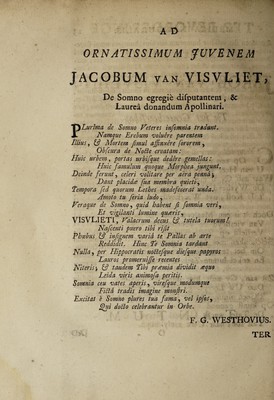 AD
ORNATISSIMUM JUVENEM
JACOBUM VAN VISVLIET,
De Somno egregiè disputantem, &
Laureâ donandum Apollinari.
PLurima de Somno Veteres insomnia tradunt.
Namque Erebum voluere parentem
Illius, & Mortem simul assinuere sororem,
Obscura de Nocte creatam:
Huic urbem, portas urbisque dedêre gemellas:
Huic famulum quoque Morphea jungunt.
Deinde ferunt, celeri volitare per aëra pennâ,
Dant placidæ sua membra quieti,
Tempora sed quorum Lethes madefecerat unda.
Amoto tu seria ludo,
Veraque de Somno, quid habent si somnia veri,
Et vigilanti lumine quæris,
VISVLIETI, Valacrum decus & tutela tuorum!
Nascenti puero tibi risit
Phœbus & insignem variâ te Pallas ab arte
Reddidit. Hinc Te Somnia tardant
Nulla, per Hippocratis noctesque diesque papyros
Lauros promeruisse recentes
Niteris; & tandem Tibi præmia dividit aqua
Leida viris animosa peritis.
Somnia ceu vates aperis, viresque modumque
Fictâ trudis imagine monstri.
Excitat è Somno plures tua fama, vel ipsos,
Qui docto celebrantur in Orbe.
F. G. WESTHOVIUS.
TER